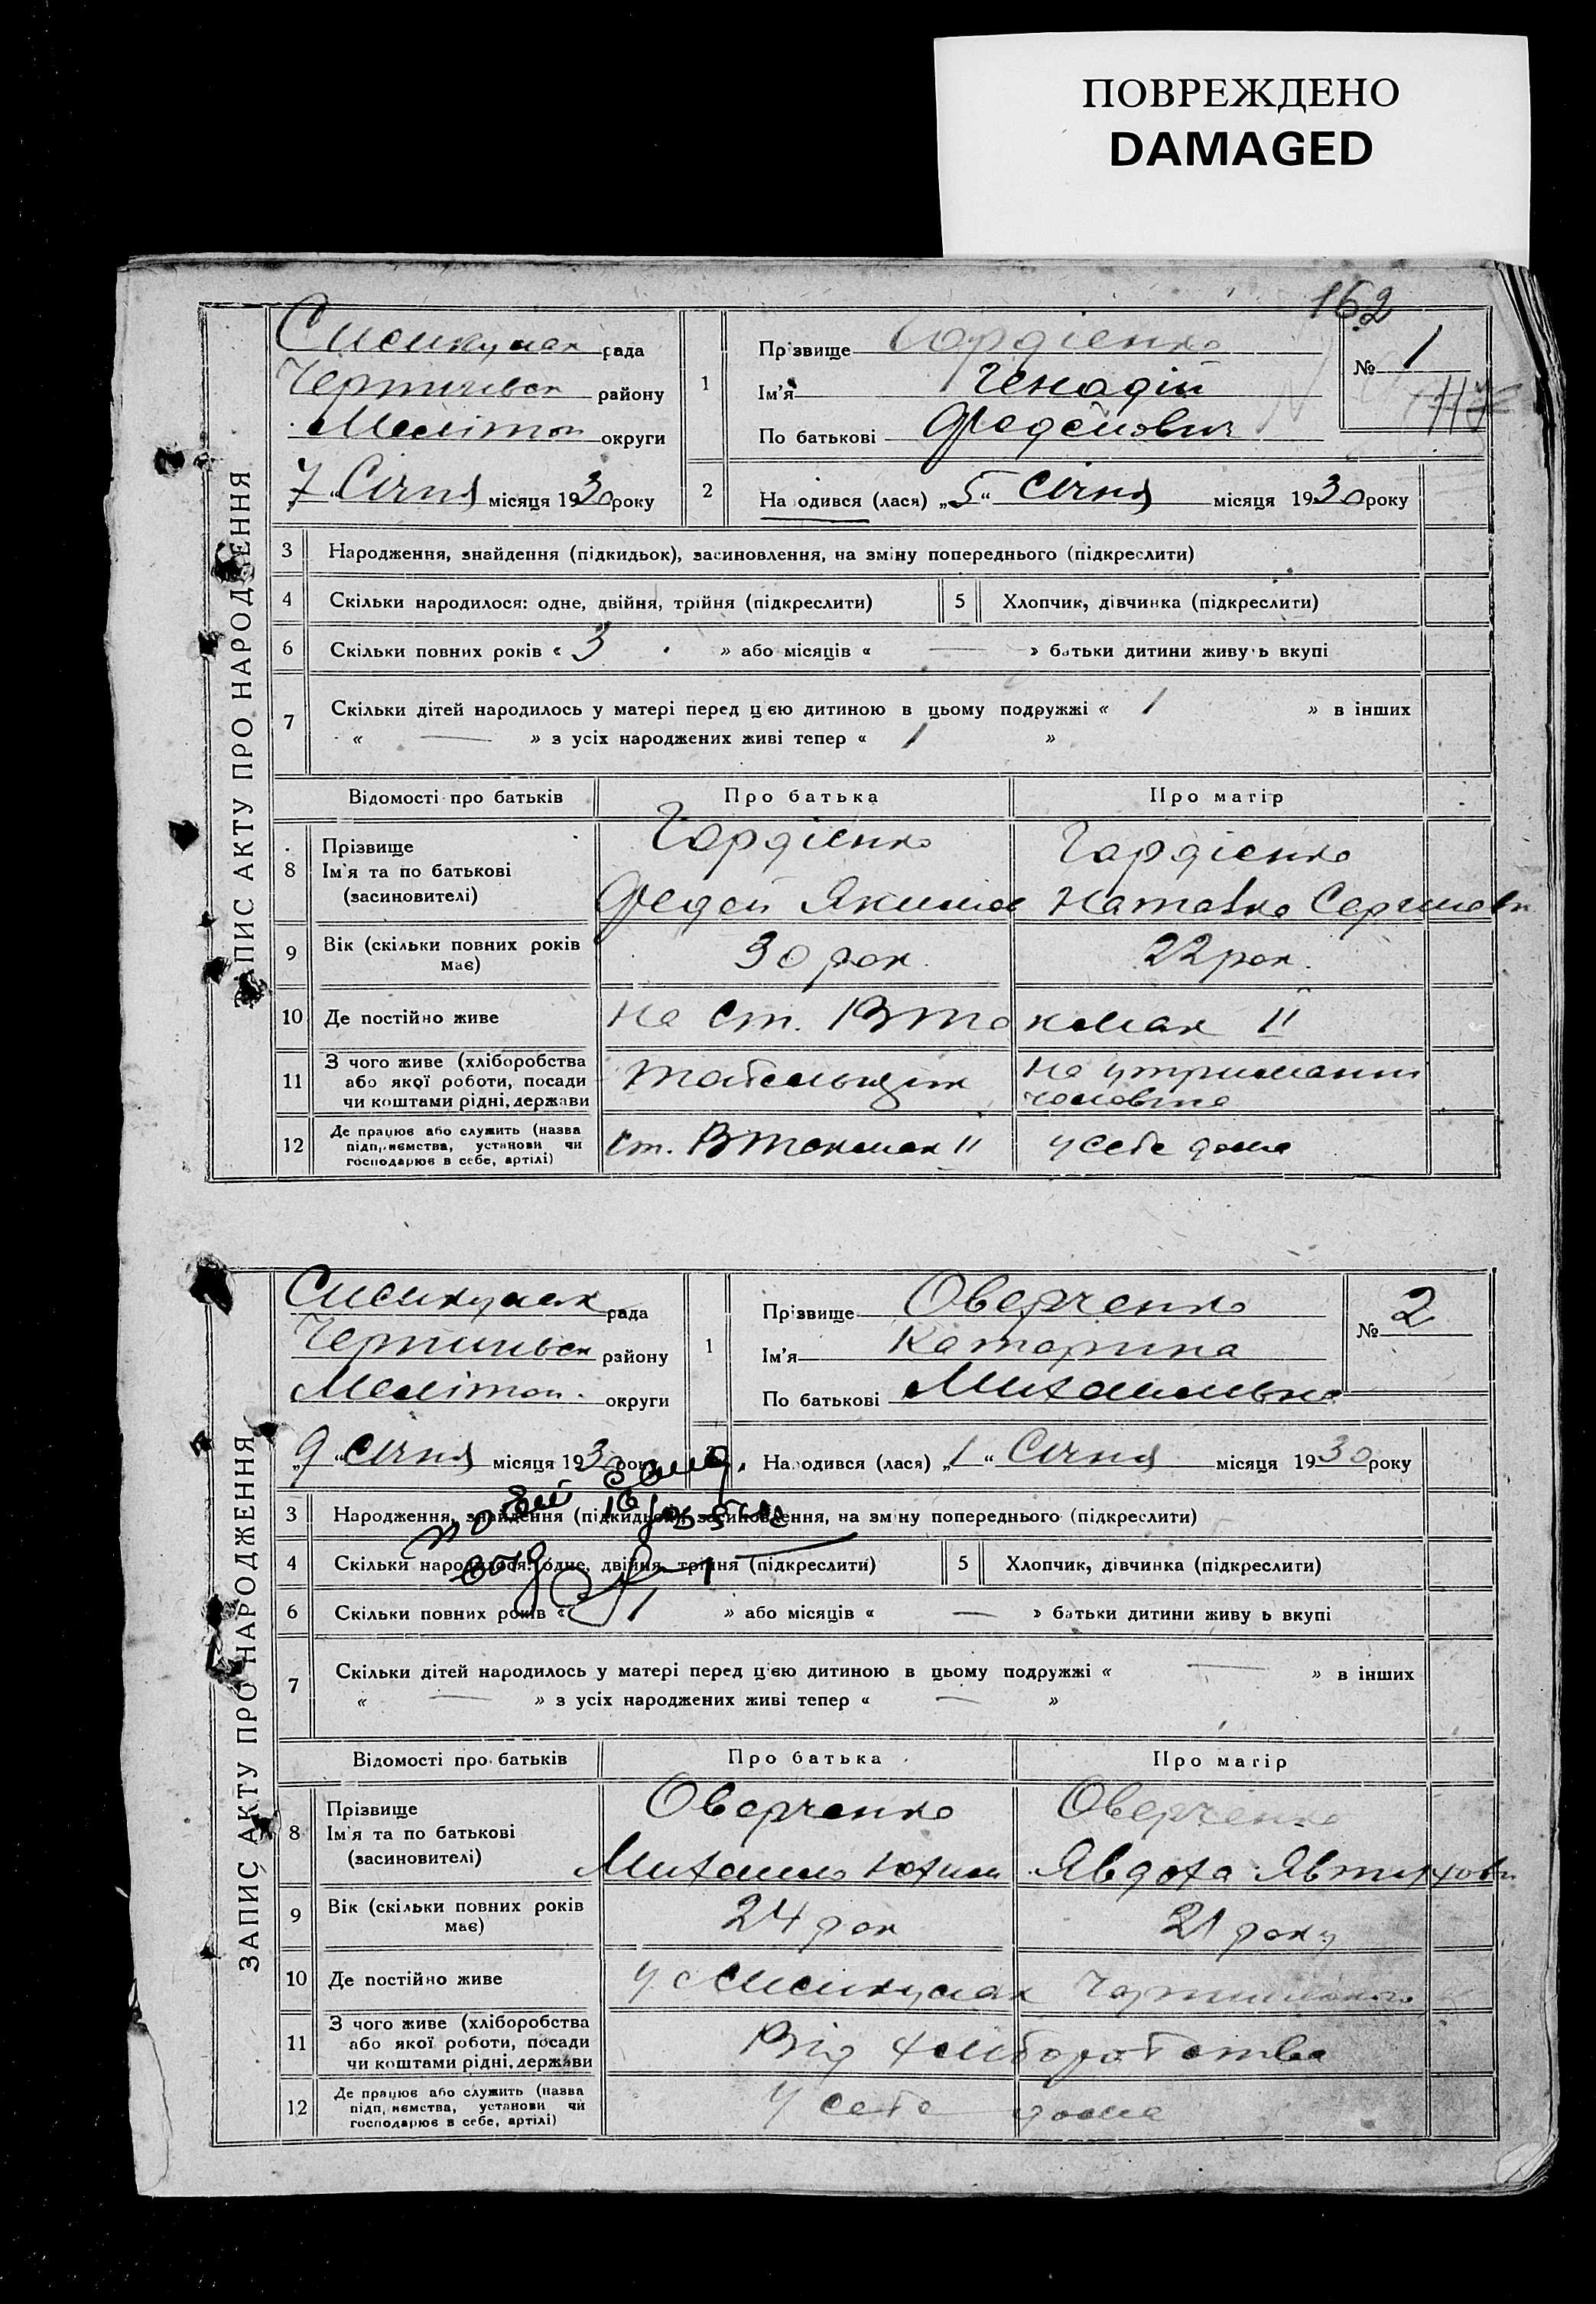 ПОВРЕЖДЕНО
DAMAGED
162
ЗАПИС АКТУ ПРО НАРОДЖЕННЯ
рада
району
Меліտоп округи
7 Січня місяця 1930 року
1 Прізвище Гордієнко
Ім'я Генадій
По батькові Федейович
№ 1
2 На одився (лася) „5“ Січня місяця 1930 року
3 Народження, знайдення (підкидьок), засиновлення, на зміну попереднього (підкреслити)
4 Скільки народилося: одне, двійня, трійня (підкреслити) 5 Хлопчик, дівчинка (підкреслити)
6 Скільки повних років « 3 » або місяців « — » батьки дитини живуть вкупі
7 Скільки дітей народилось у матері перед цією дитиною в цьому подружжі « 1 » в інших
« — » з усіх народжених живі тепер « 1 »
Відомості про батьків Про батька Про матір
8 Прізвище
Ім'я та по батькові
(засиновителі)
Гордієнко Гордієнко
Федей Яким Наталка
9 Вік (скільки повних років
має)
30 рок. 22 рок.
10 Де постійно живе На ст. В Токмак II
11 З чого живе (хліборобства
або якої роботи, посади
чи коштами рідні, держави
Табельщик На утриманні
чоловіка
12 Де працює або служить (назва
підприємства, установи чи
господарює в себе, артілі)
ст. В Токмак II у себе дома
ЗАПИС АКТУ ПРО НАРОДЖЕННЯ
рада
району
Меліտоп. округи
„9“ Січня місяця 1930 року
1 Прізвище Оверченко
Ім'я Катарина
По батькові Михайливна
№ 2
Народився (лася) „1“ Січня місяця 1930 року
3 Народження, знайдення (підкидьок), засиновлення, на зміну попереднього (підкреслити)
4 Скільки народилося: одне, двійня, трійня (підкреслити) 5 Хлопчик, дівчинка (підкреслити)
6 Скільки повних років « 1 » або місяців « — » батьки дитини живу ь вкупі
7 Скільки дітей народилось у матері перед цією дитиною в цьому подружжі « — » в інших
« — » з усіх народжених живі тепер « — »
Відомості про батьків Про батька Про матір
8 Прізвище
Ім'я та по батькові
(засиновителі)
Оверченко Оверченко
Михайло Юхим Явдоха
9 Вік (скільки повних років
має)
24 рок 21 року
10 Де постійно живе
11 З чого живе (хліборобства
або якої роботи, посади
чи коштами рідні, держави
Від хлиборобства
12 Де працює або служить (назва
підприємства, установи чи
господарює в себе, артілі)
У себе дома